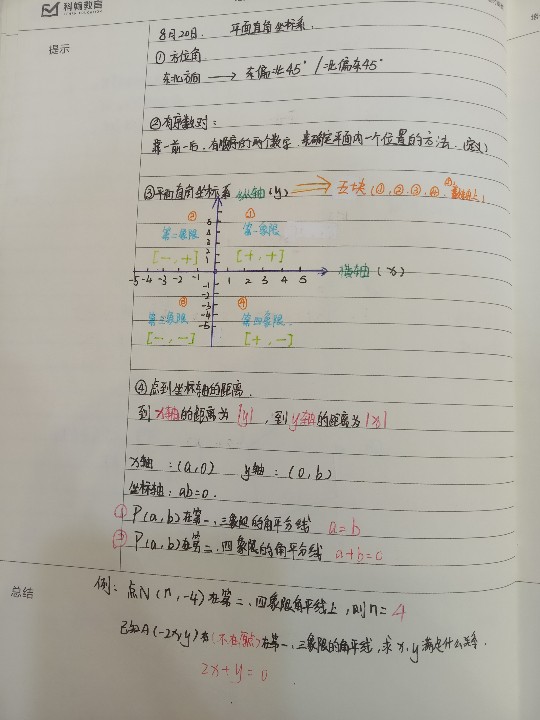 科翰教育
提示
8月20日. 平面直角坐标系.
① 方位角
东北方向 → 东偏北45° / 北偏东45°
②有序数对:
靠一前一后, 有顺序的两个数字, 来确定平面内一个位置的方法. (定义)
③平面直角坐标系 纵轴(y) ⟹ 五块(①,②,③,④,
② ①
第二象限 第一象限
[-,+] [+,+]
5
4
3
2
1
-5 -4 -3 -2 -1 1 2 3 4 5 横轴 (x)
-1
-2
-3
-4
-5
③ ④
第三象限 第四象限.
[-,-] [+,-]
④点到坐标轴的距离.
到x轴的距离为|y|, 到y轴的距离为|x|
x轴:(a,0) y轴:(0,b)
坐标轴: ab=0.
① P(a,b)在第一、三象限的角平分线 a=b
② P(a,b)在第二、四象限的角平分线 a+b=0
总结
例: 点N(n,-4)在第二、四象限角平线上,则n=4
已知A(-2x,y)在(不在原点)在第一、三象限的角平线,求x,y满足什么关系.
2x+y=0